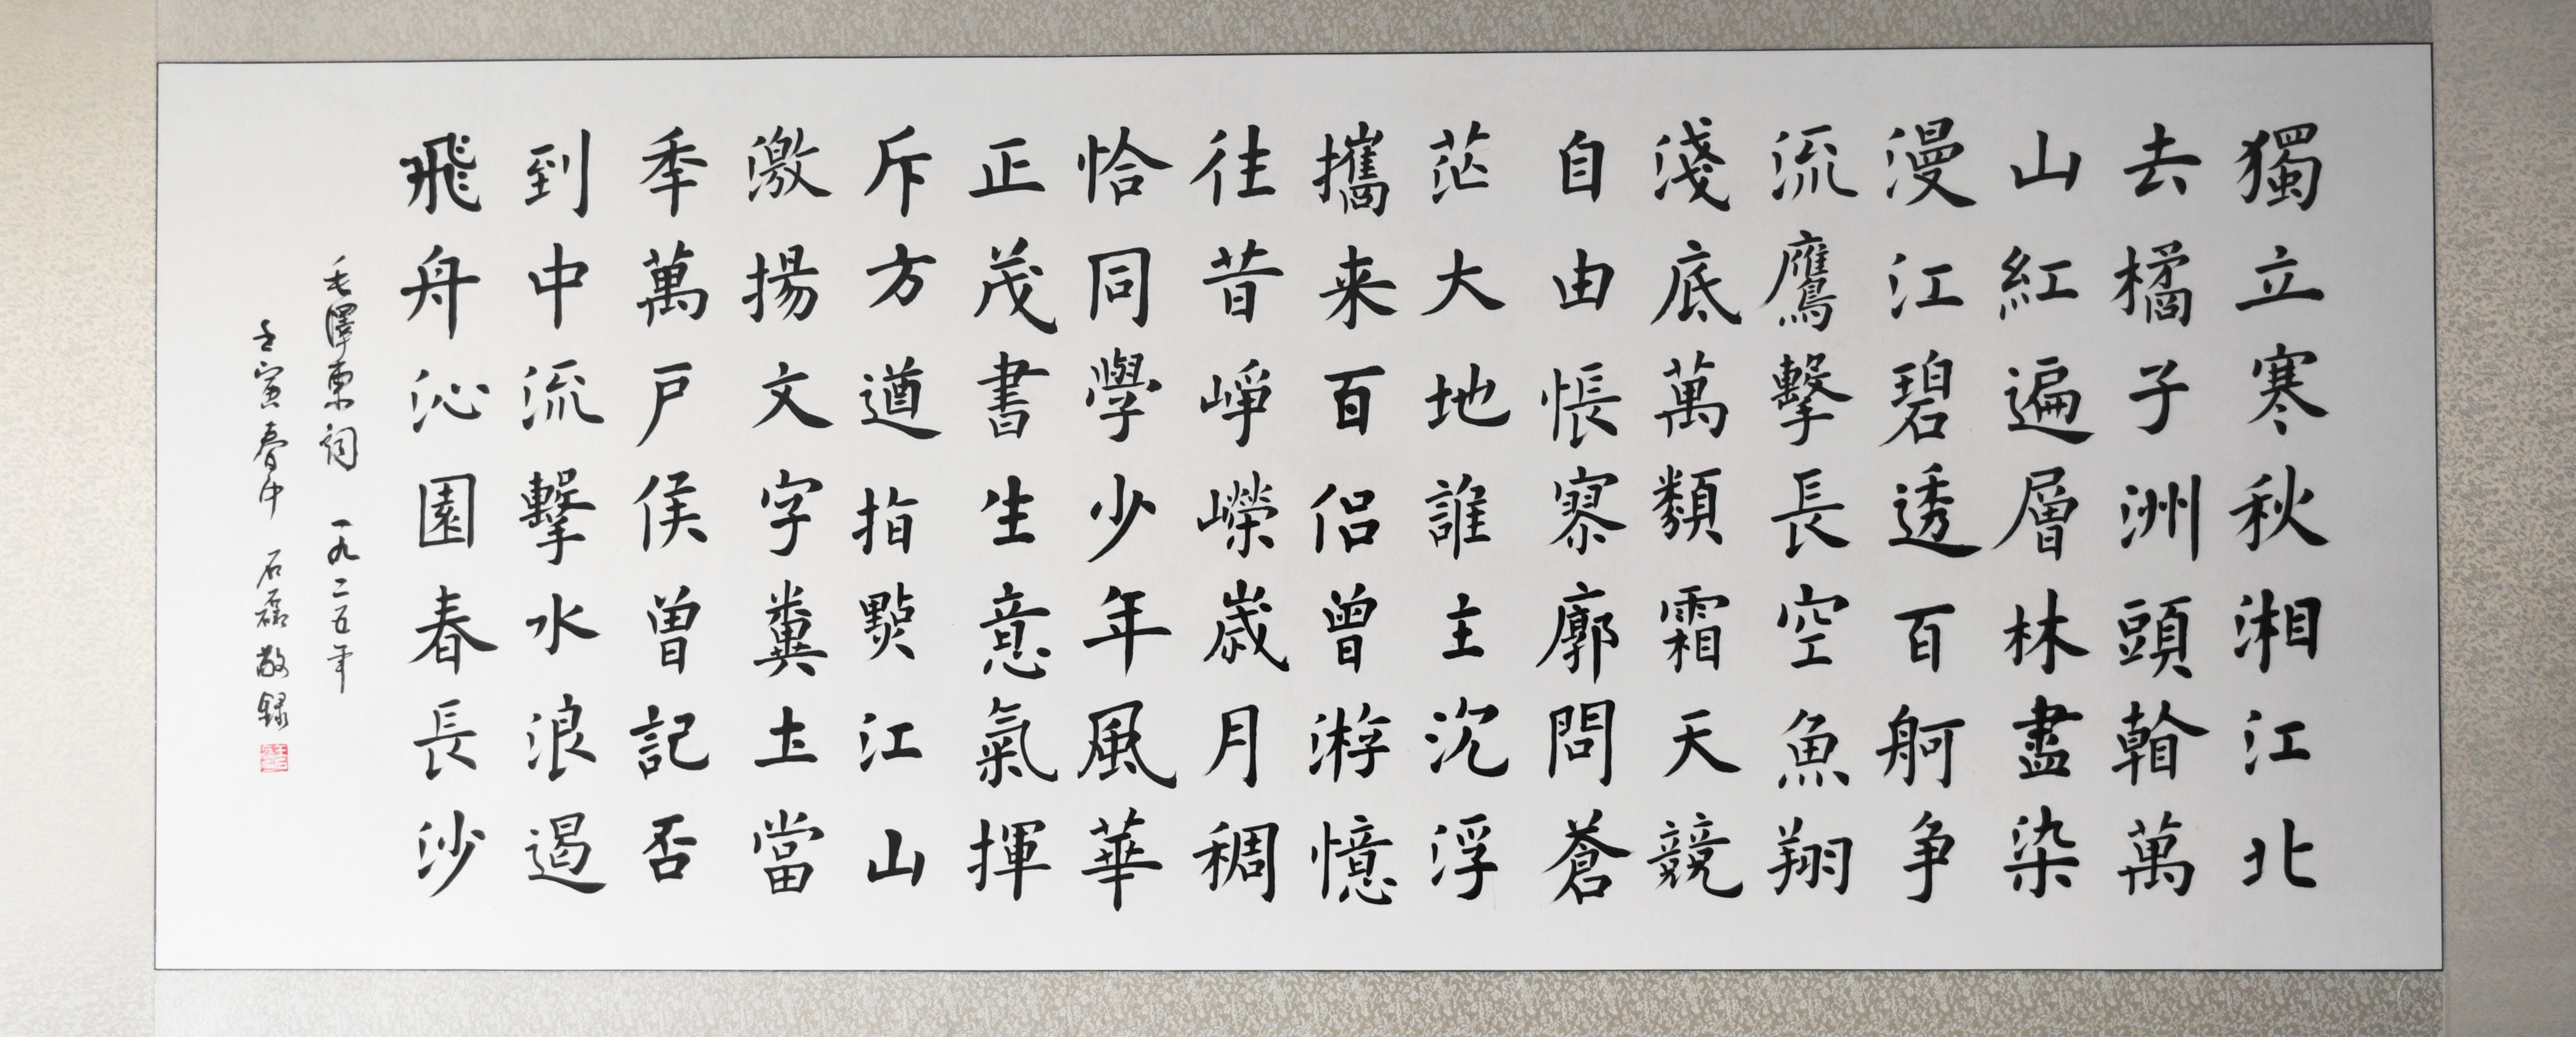 獨立寒秋湘江北
去橘子洲頭看萬
山紅遍層林盡染
漫江碧透百舸争
流鷹擊長空魚翔
淺底萬類霜天競
自由悵寥廓問蒼
茫大地誰主沉浮
攜来百侣曾游憶
往昔崢嶸歲月稠
恰同學少年風華
正茂書生意氣揮
斥方遒指點江山
激揚文字糞土當
年萬戶侯曾記否
到中流擊水浪遏
飛舟沁園春長沙
毛澤東詞 一九二五年
壬寅春中 石磊敬録